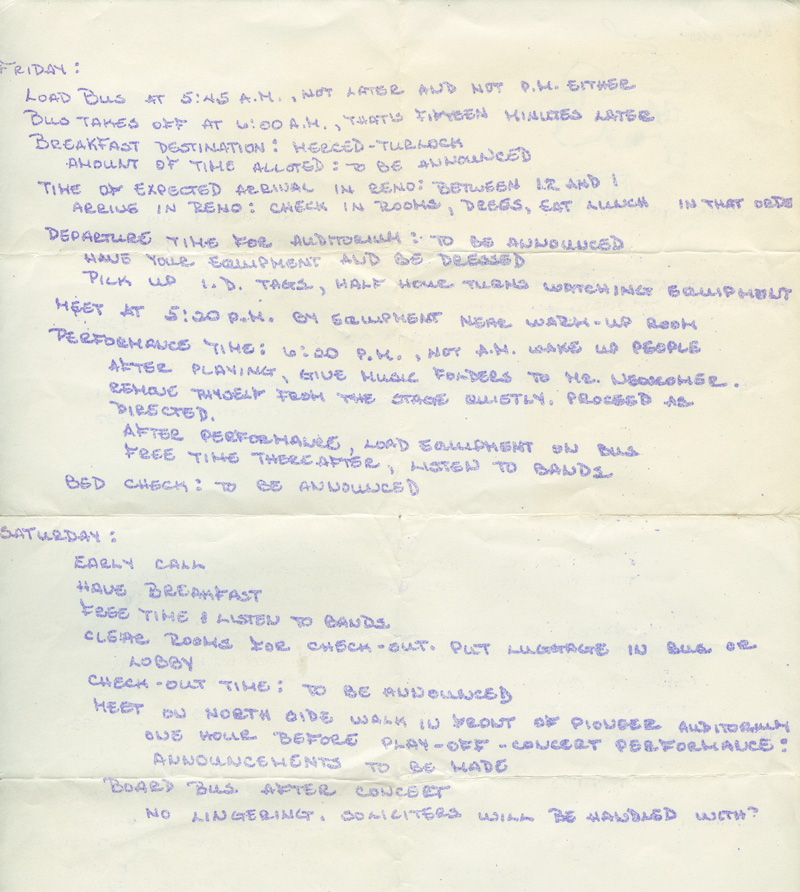 FRIDAY:
LOAD BUS AT 5:45 A.M., NOT LATER AND NOT P.M. EITHER
BUS TAKES OFF AT 6:00 A.M., THATS FIFTEEN MINUTES LATER
BREAKFAST DESTINATION: MERCED-TURLOCK
AMOUNT OF TIME ALLOTED: TO BE ANNOUNCED
TIME OF EXPECTED ARRIVAL IN RENO: BETWEEN 12 AND 1
ARRIVE IN RENO: CHECK IN ROOMS, DRESS, EAT LUNCH IN THAT ORDE
DEPARTURE TIME FOR AUDITORIUM: TO BE ANNOUNCED
HAVE YOUR EQUIPMENT AND BE DRESSED
PICK UP I.D. TAGS, HALF HOUR TURNS WATCHING EQUIPMENT
MEET AT 5:20 P.M. BY EQUIPMENT NEAR WARM-UP ROOM
PERFORMANCE TIME: 6:20 P.M., NOT A.M. WAKE UP PEOPLE
AFTER PLAYING, GIVE MUSIC FOLDERS TO MR. NEOSCOMER.
REMOVE THYSELF FROM THE STAGE QUIETLY. PROCEED AS
DIRECTED.
AFTER PERFORMANCE, LOAD EQUIPMENT ON BUS
FREE TIME THEREAFTER, LISTEN TO BANDS
BED CHECK: TO BE ANNOUNCED
SATURDAY:
EARLY CALL
HAVE BREAKFAST
FREE TIME & LISTEN TO BANDS
CLEAR ROOMS FOR CHECK-OUT. PUT LUGGAGE IN BUS OR
LOBBY
CHECK-OUT TIME: TO BE ANNOUNCED
MEET ON NORTH SIDE WALK IN FRONT OF PIONEER AUDITORIUM
ONE HOUR BEFORE PLAY-OFF-CONCERT PERFORMANCE:
ANNOUNCEMENTS TO BE MADE
BOARD BUS AFTER CONCERT
NO LINGERING. SOLICITERS WILL BE HANDLED WITH?